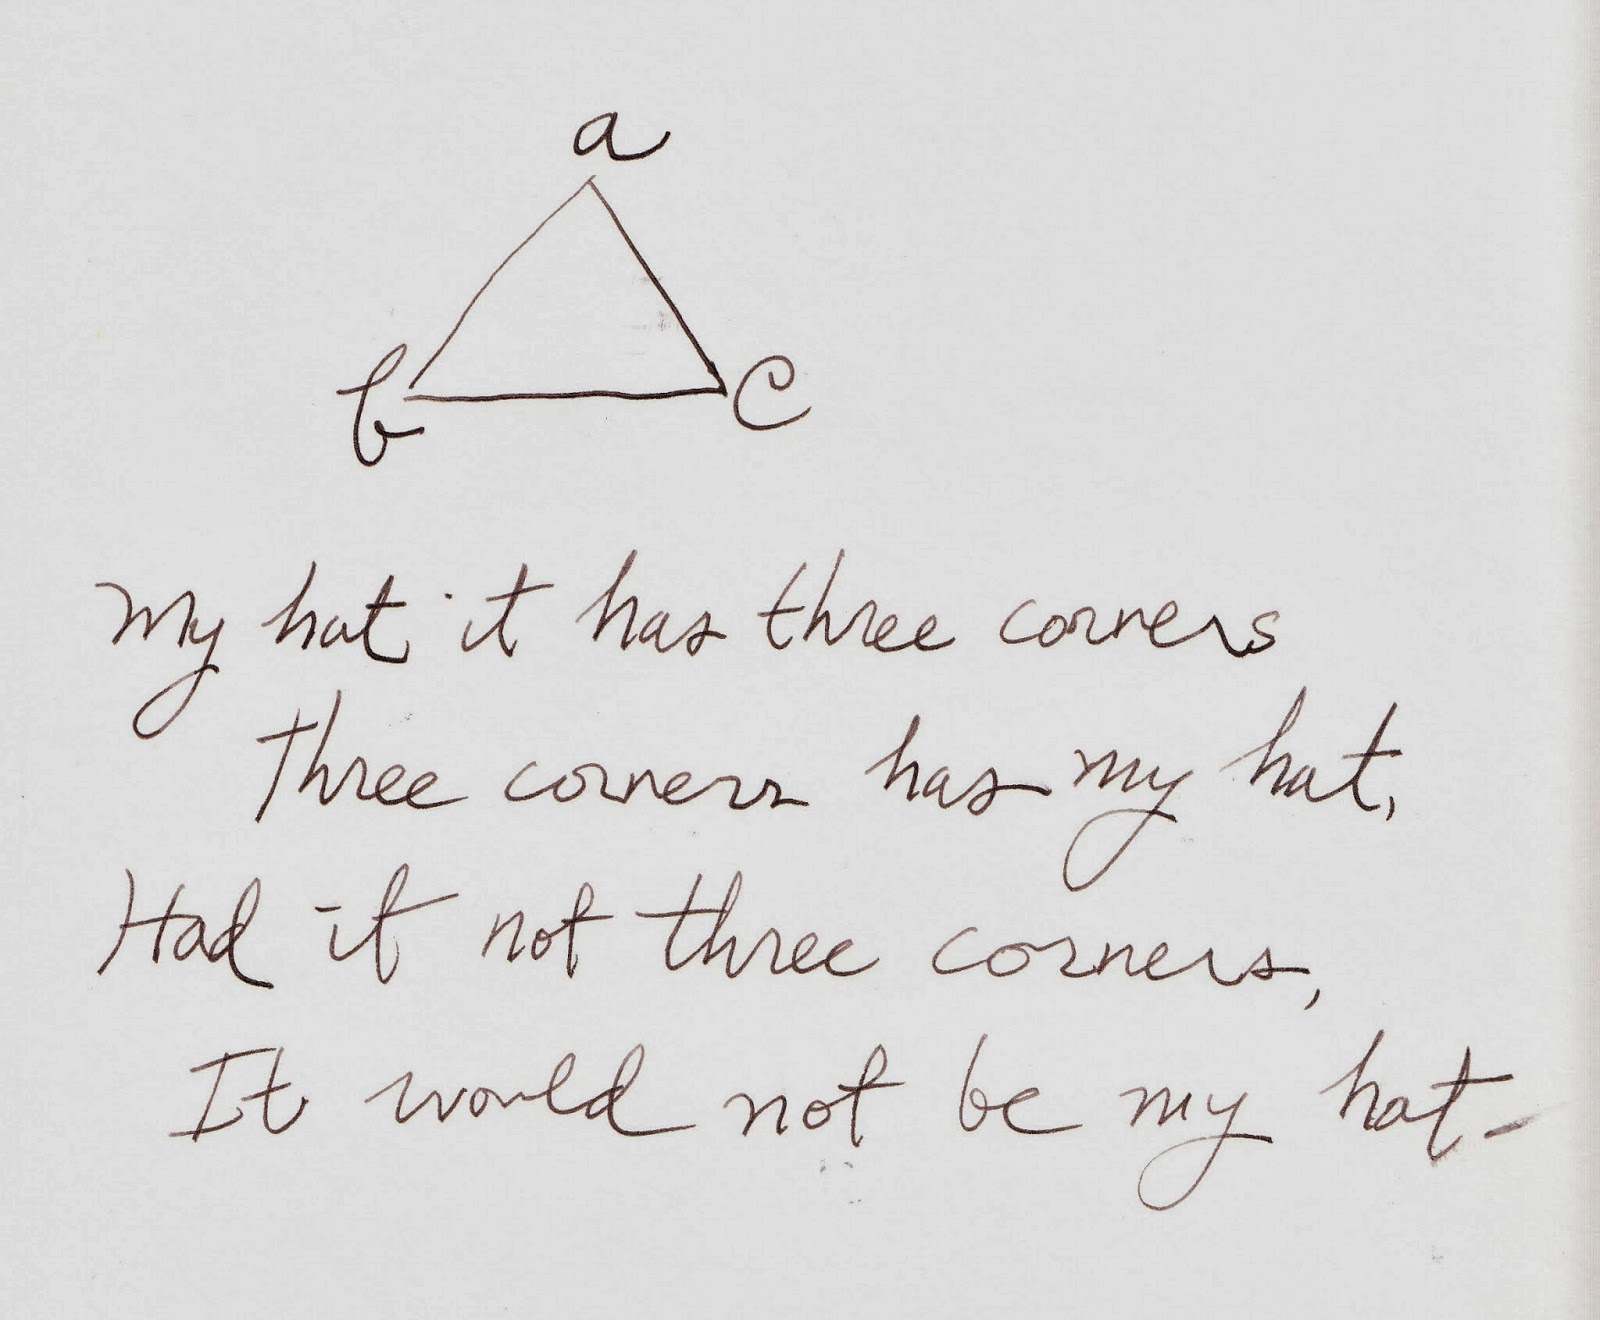 a
b
c
My hat it has three corners
Three corners has my hat,
Had it not three corners,
It would not be my hat-